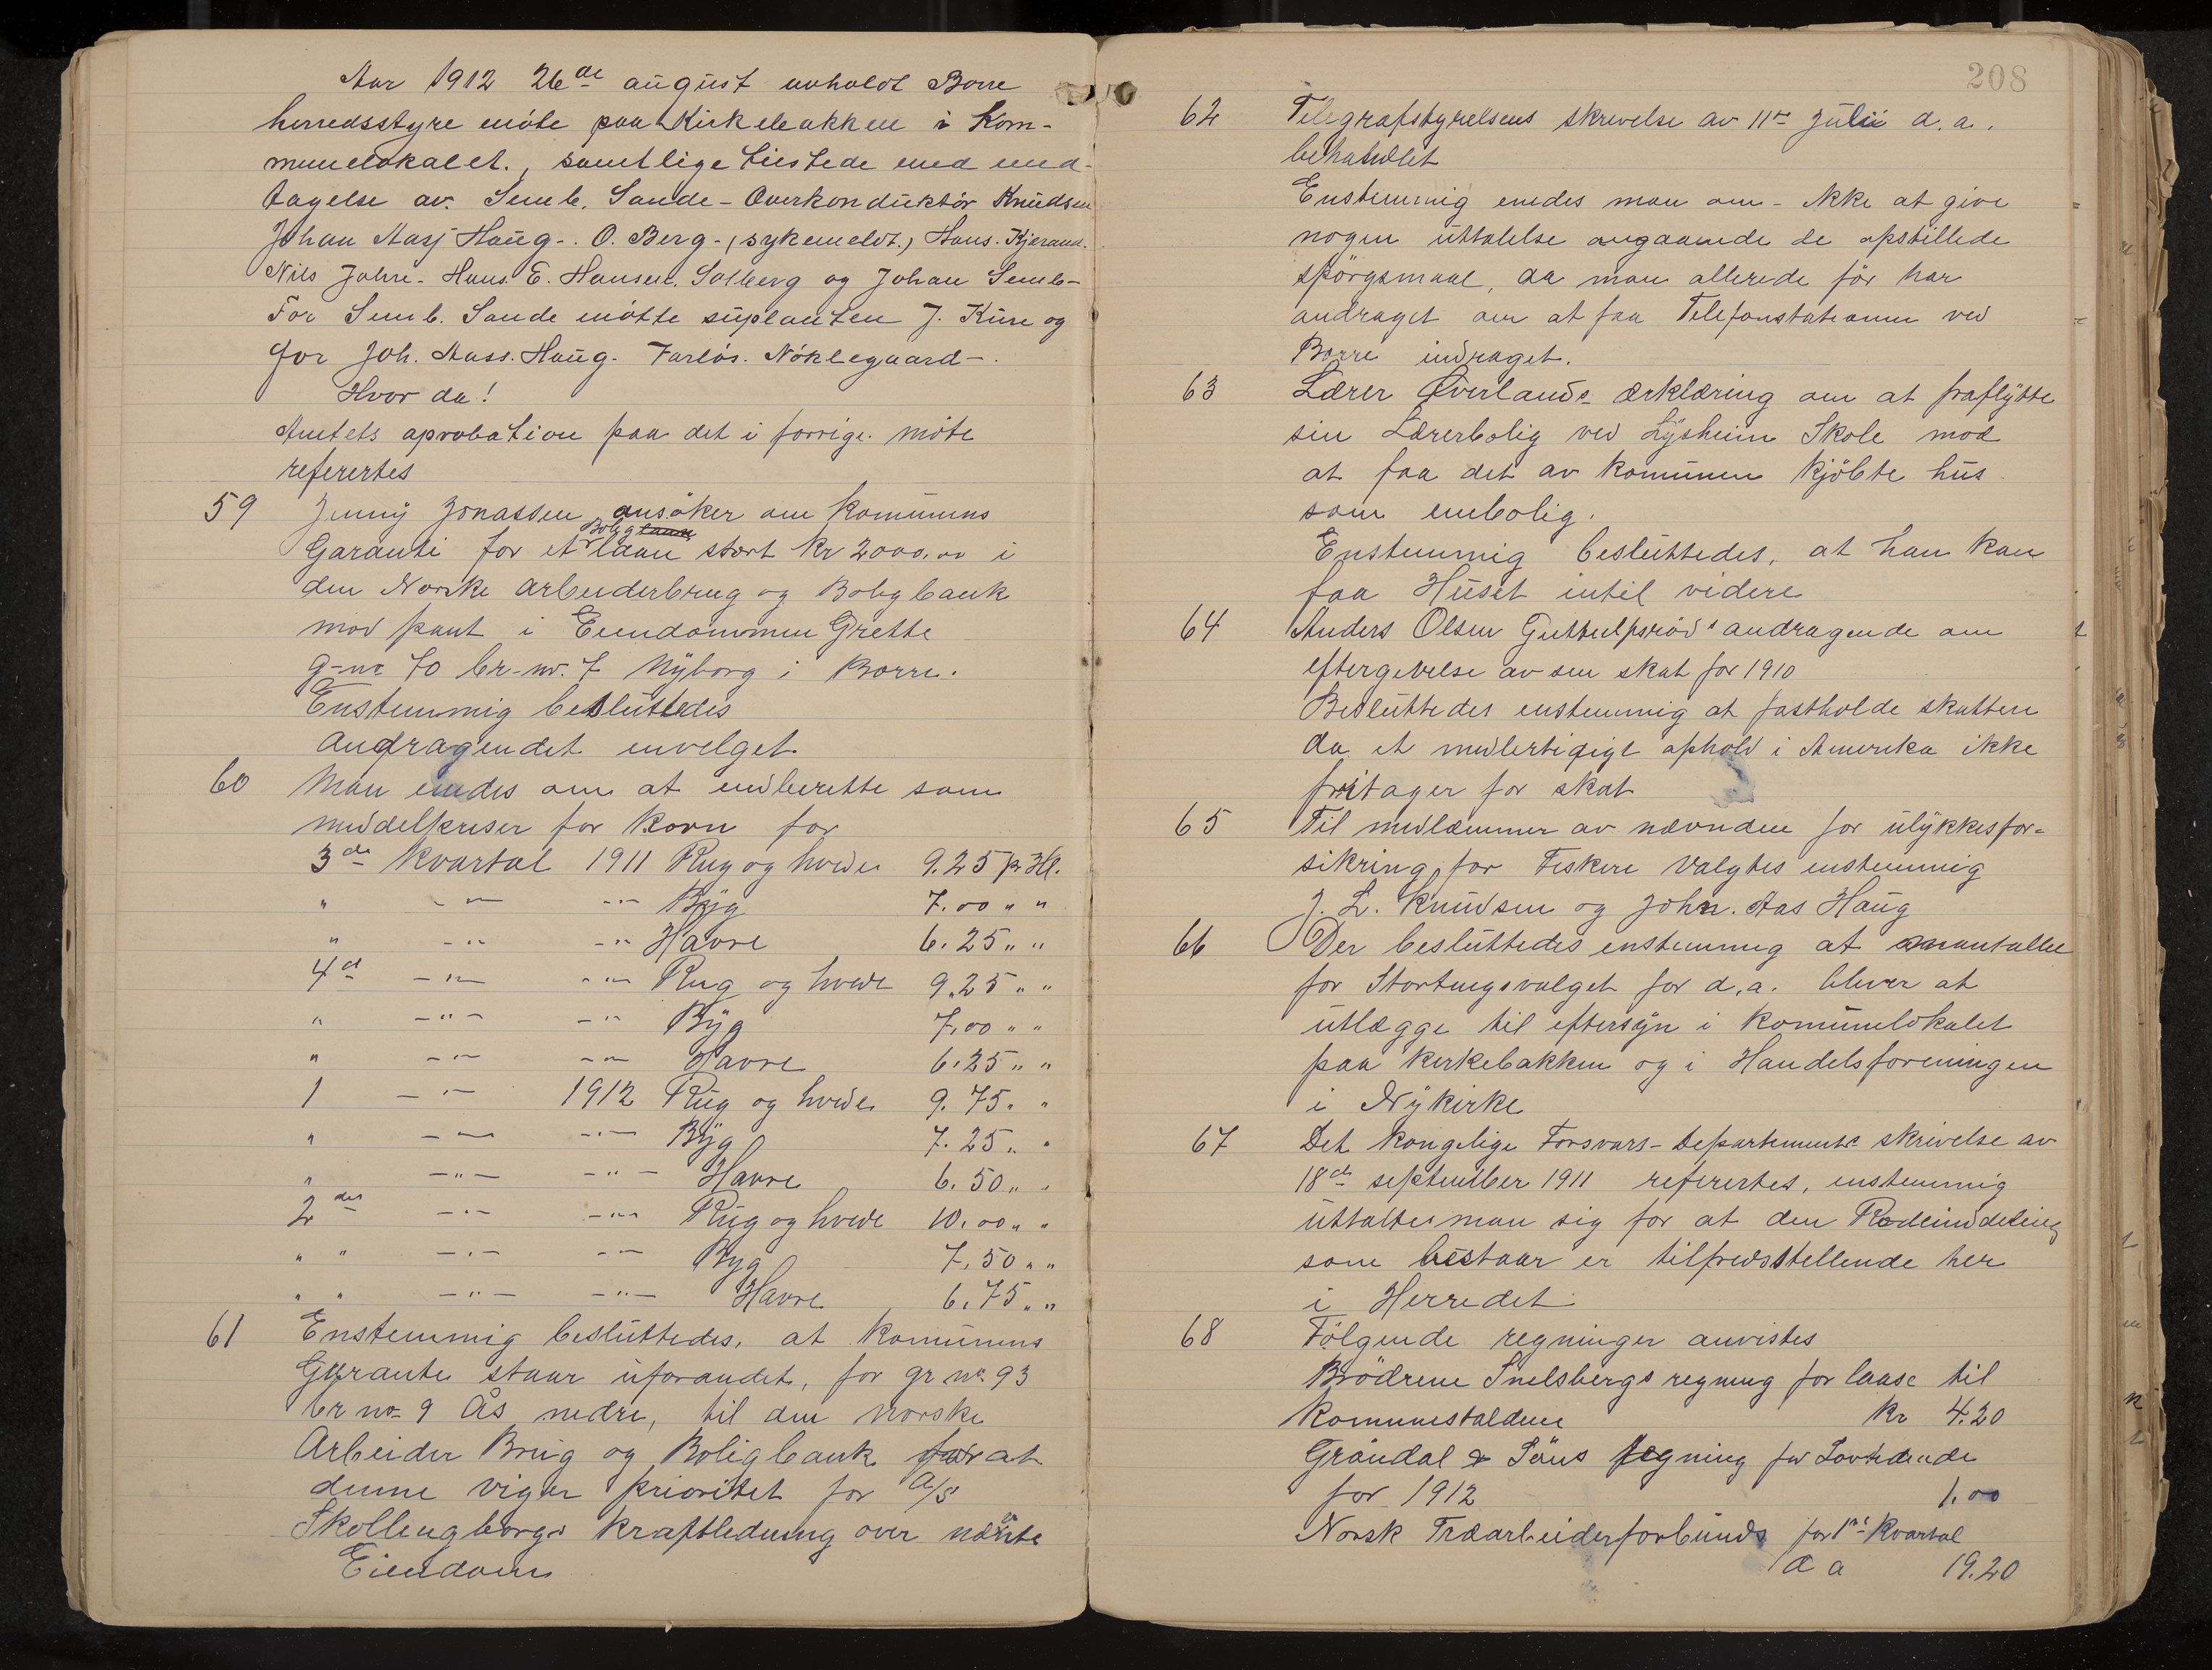 Aar 1912 26de august avholdt Borre
herredsstyre möte paa Kirkebakken i Kom-
munelokalet., samtlige tilstede med und-
tagelse av. Semb. Sande - Overkonduktör Knudsen
Johan Aasj Haug-. O. Berg-, (sykemeldt.) Hans. Kjerand.
Nils Jahre- Hans. E. Hansen. Solberg og Johan Semb-
For Semb. Sande mötte suplanten J. Kure og
for Joh. Aass. Haug. Nöklegaard-.
Hvor da!
Amtets aprobation paa det i forrige möte
referertes
59 Jenny Jonassen ansöker om komunens
Bolig
Garanti for et laan stort kr 2000.00 i
den Norske arbeiderbrug og Boligbank
mod pant i Eiendommen Grette
g-no 70 br-no. 7 Nyborg i Borre.
Enstemmig besluttedes
andragendet invelget
60 Man enedes om at indberette som
middelpriser for korn for
3de kvartal 1911 Rug og hvede 9.25 pr Hl.
" -"- -"- Byg 7.00 " "
" -"- -"- Havre 6.25 " "
4de -"- -"- Rug og hvede 9.25 " "
" -"- -"- Byg 7.00 " "
" -"- -"- Havre 6.25 " "
1 -"- 1912 Rug og hvede 9.75 " "
" -"- -"- Byg 7.25 " "
" -"- -"- Havre 6.50 " "
2det -"- -"- Rug og hvede 10.00 " "
" " -"- -"- Byg 7.50 " "
" " -"- -"- Havre 6.75 " "
61 Enstemmig besluttedes, at komunens
Garanti staar uforandet, for gr no. 93
br no- 9 Ås nedre, til den norske
Arbeider Brug og Boligbank for at
denne viger prioritet for A/S
Skollenborgs kraftledning over nævnte
Eiendom
208
62 Telegrafstyrelsens skrivelse av 11te Juli d.a.
behandlet
Enstemmig enedes man om- ikke at give
nogen uttalelse angaaende de opstillede
spörgsmaal, da man allerede för har
andraget om at faa Telefonstationen ved
Borre indraget.
63 Lærer Øverlands ærklæring om at fraflytte
sin Lærerbolig ved Lysheim Skole mod
at faa det av komunen kjöbte hus
som enbolig.
Enstemmig besluttedes, at han kan
faa Huset intil videre
64 Anders Olsen andragende om
eftergivelse av sin skat for 1910
Besluttedes enstemmig at fastholde skatten
da et midlertidigt ophold i Amerika ikke
fritager for skat
65 Til medlæmmer av nævnden for ulykkesfor-
sikring for Fiskere valgtes enstemmig
J. L. Knudsen og John. Aas Haug
66 Der besluttedes enstemmig at manntallet
for Stortingsvalget for d.a. bliver at
utlægge til eftersyn i komunelokalet
paa kirkebakken og i Handelsforeningen
i Nykirke
67 Det kongelige Forsvars-Departements skrivelse av
18de september 1911 referertes, enstemmig
uttaltes man sig for at den Rodeinddeling
som bestaar er tilfredsstellende her
i Herredet.
68 Fölgende regninger anvistes
Brödrene Snelsbergs regning for laase til
komunestalden kr 4.20
Gröndal & Söns regning for Lovtidende
for 1912 1.00
Norsk Træarbeiderforbunds for 1ste kvartal
d a 19.20